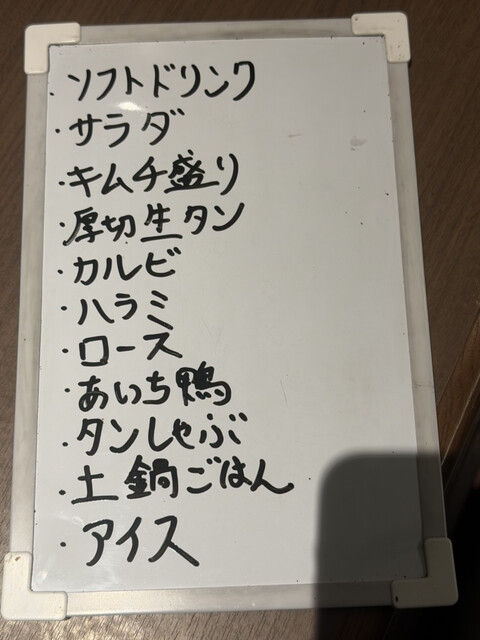 ・ソフトドリンク
・サラダ
・キムチ盛り
・厚切生タン
・カルビ
・ハラミ
・ロース
・あいち鴨
・タンしゃぶ
・土鍋ごはん
・アイス